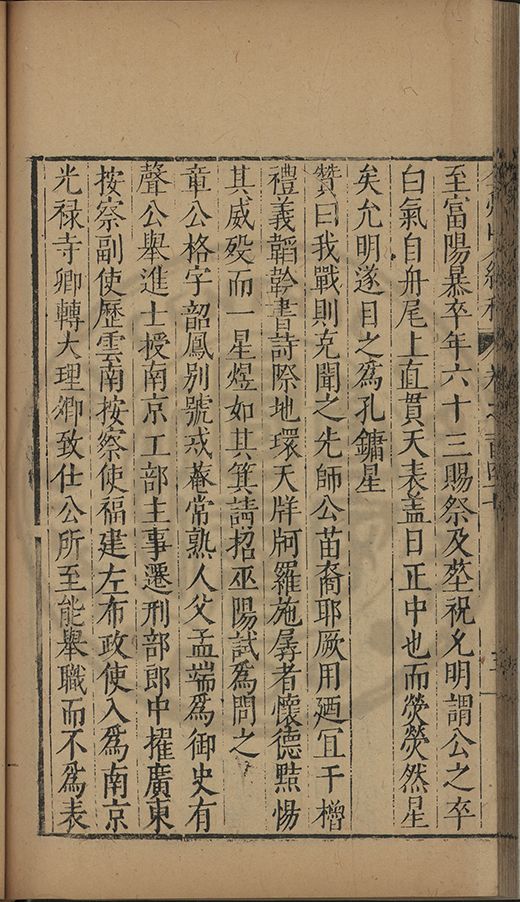 至富陽暴卒年六十三賜祭及塟祝允明謂公之卒
白氣自舟尾上直貫天表盖日正中也而熒熒然星
矣允明遂目之爲孔鏞星
贊曰我戰則克聞之先師公苗裔耶厥用廼宜干櫓
禮義韜鈐書詩際地環天牂牁羅施孱者懷德黠惕
其威殁而一星煜如其箕請招巫陽試爲問之
章公格字韶鳳别號戒菴常熟人父孟端爲御史有
聲公舉進士授南京工部主事遷刑部郎中擢廣東
按察副使歷雲南按察使福建左布政使入爲南京
光禄寺卿轉大理卿致仕公所至能舉職而不爲表